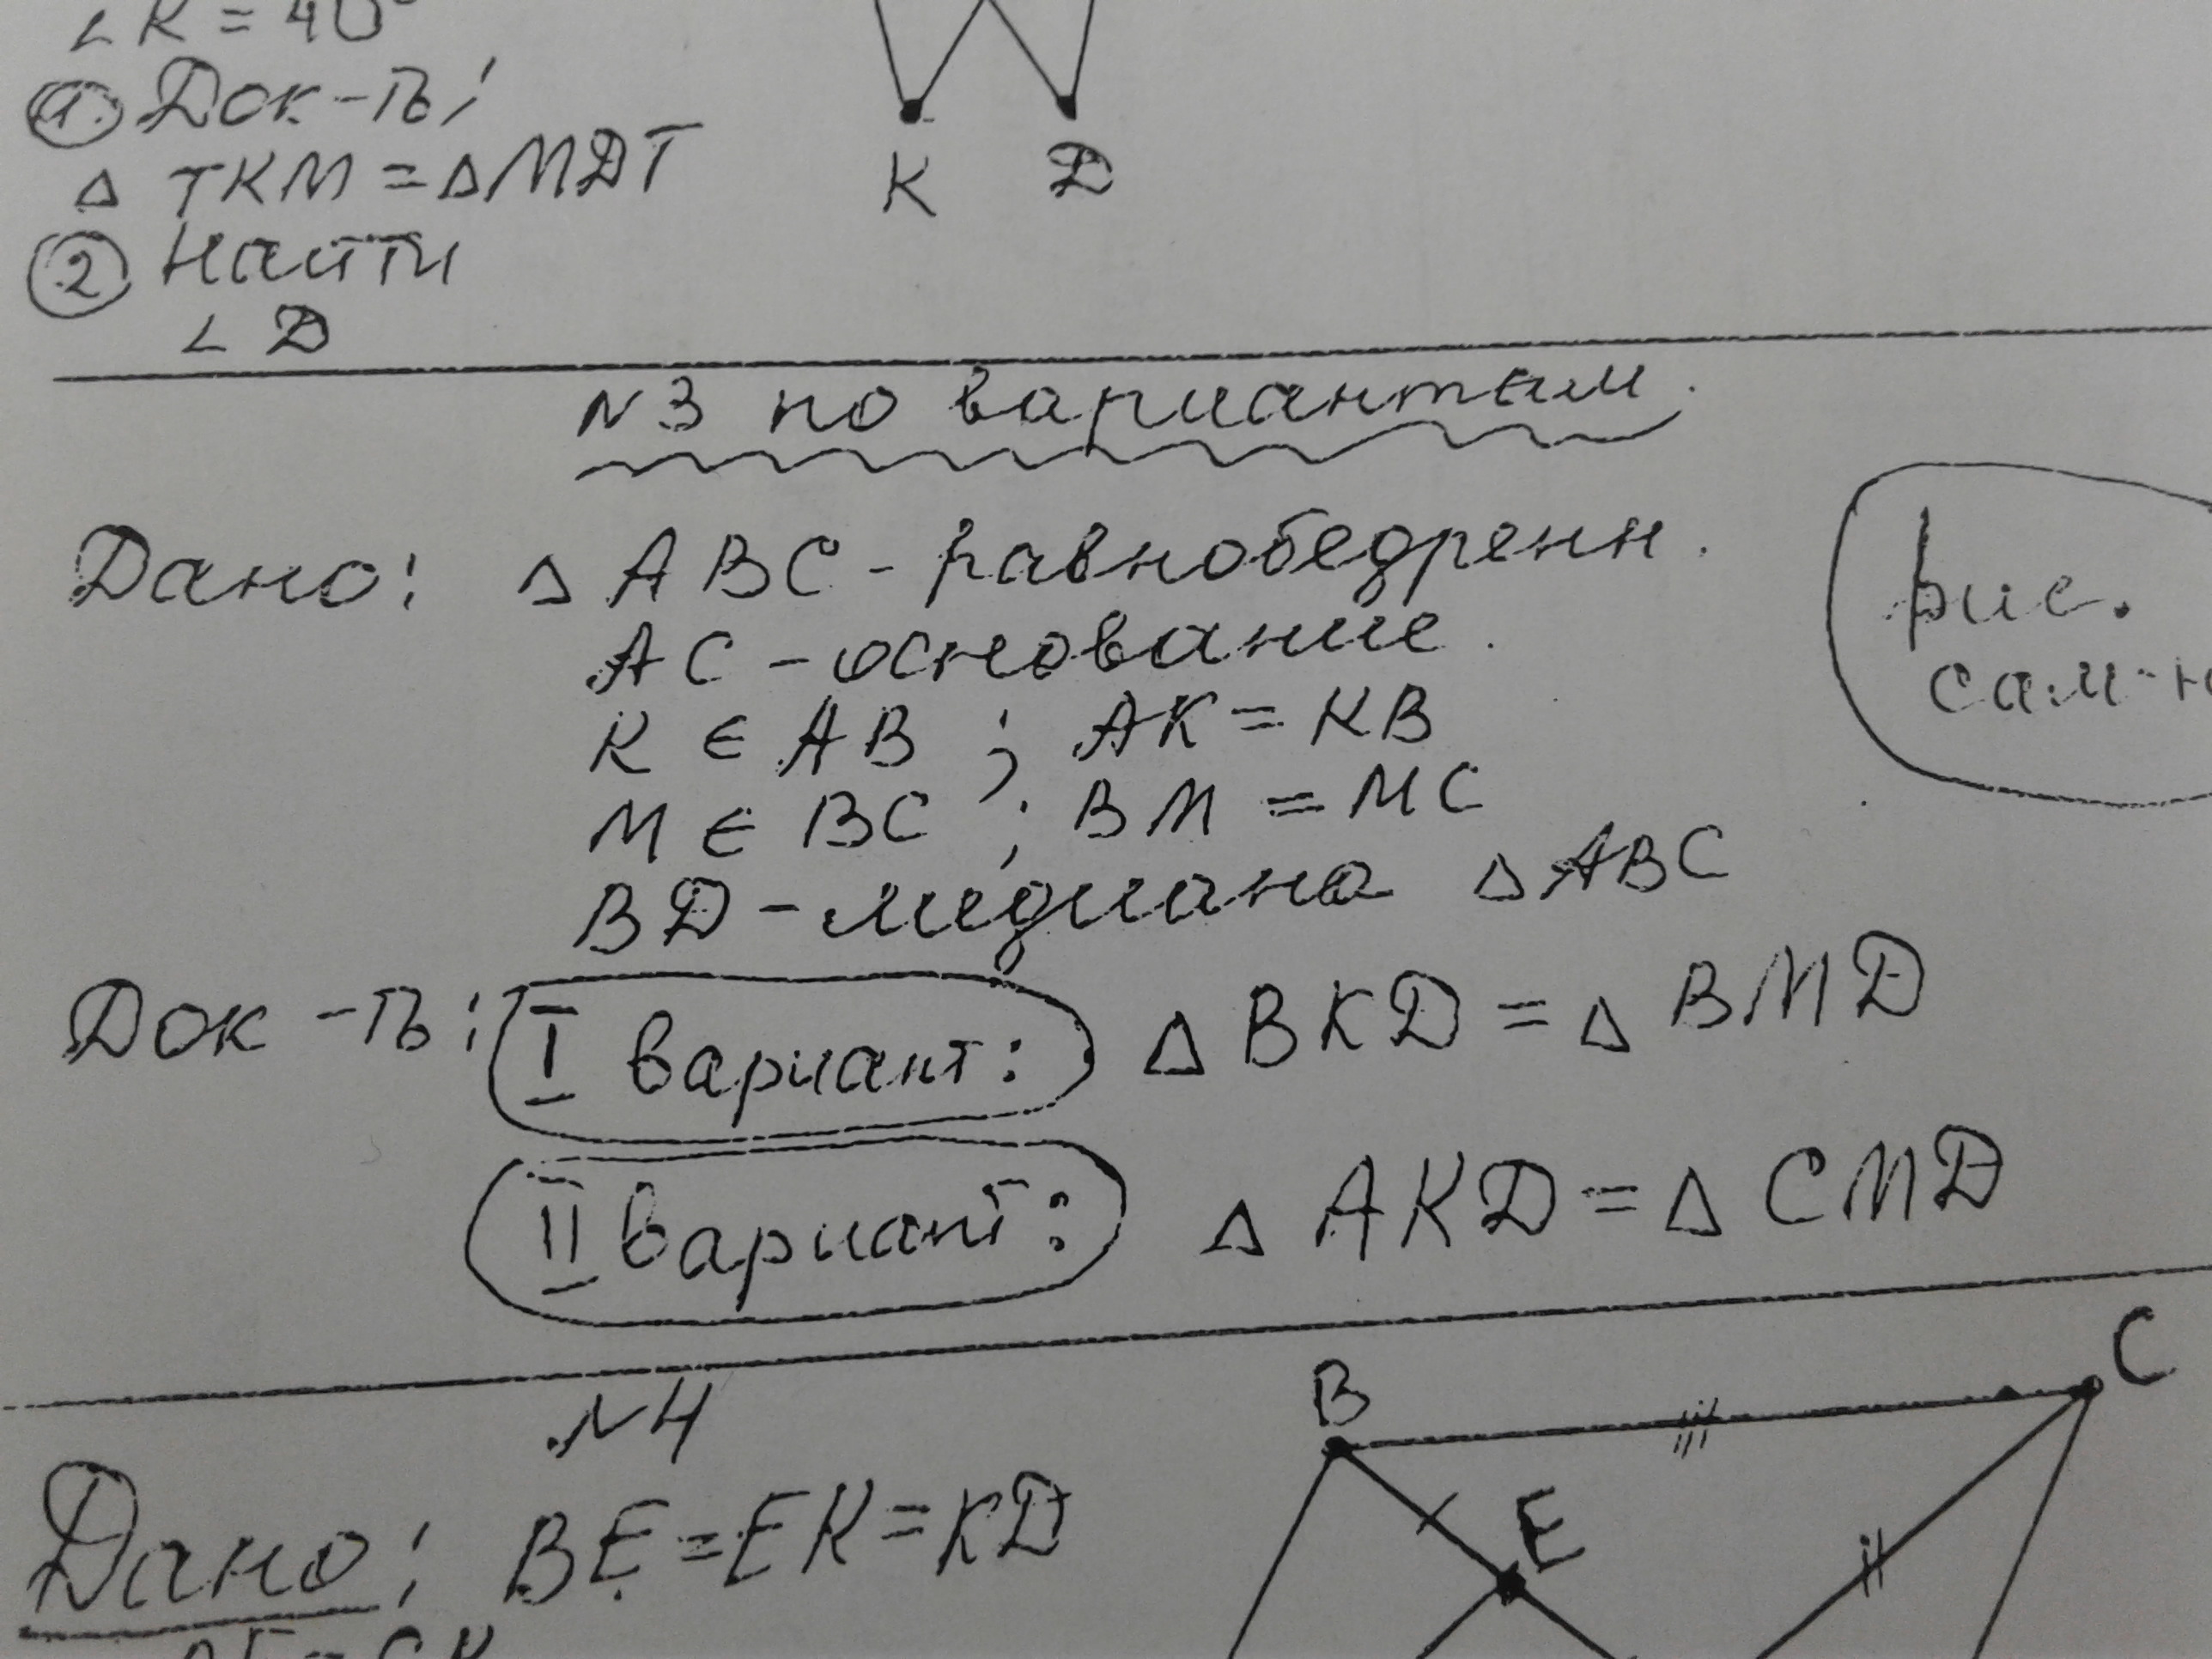 ∠K = 40°
① Док-ть:
Δ TKM = Δ MDT
K D
② Найти
∠D
N3 по вариантам.
Дано: Δ ABC - равнобедренн.
рис.
AC - основание.
K ∈ AB ; AK = KB
M ∈ BC ; BM = MC
BD - медиана Δ ABC
Док-ть: I вариант: Δ BKD = Δ BMD
II вариант: Δ AKD = Δ CMD
N4
B C
Дано: BE = EK = KD
E